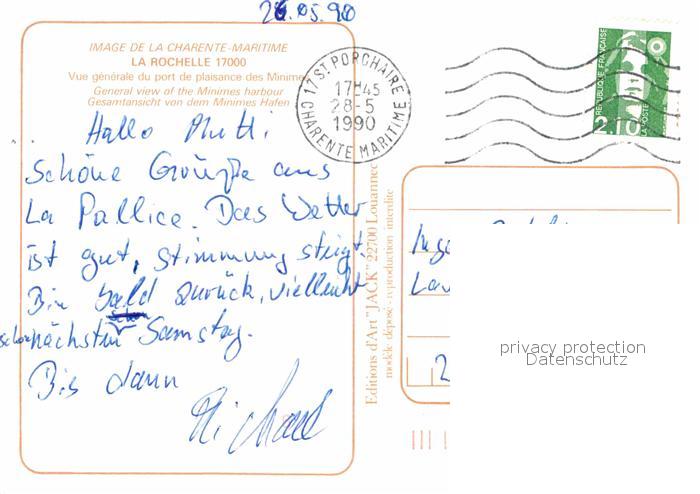 26.05.90
IMAGE DE LA CHARENTE-MARITIME
LA ROCHELLE 17000
Vue générale du port de plaisance des Minimes
General view of the Minimes harbour
Gesamtansicht von dem Minimes Hafen
17 ST PORCHAIRE
17H45
28-5
1990
CHARENTE MARITIME
RÉPUBLIQUE FRANÇAISE
2,10
LA POSTE
Hallo Mutti
Schöne Grüße aus
La Pallice. Das Wetter
ist gut, Stimmung steigt.
Bin bald zurück, vielleicht
schon nächsten Samstag.
Bis dann
Michael
Editions d'Art "JACK" 22700 Louannec
modèle déposé - reproduction interdite
Inge
2
privacy protection
Datenschutz